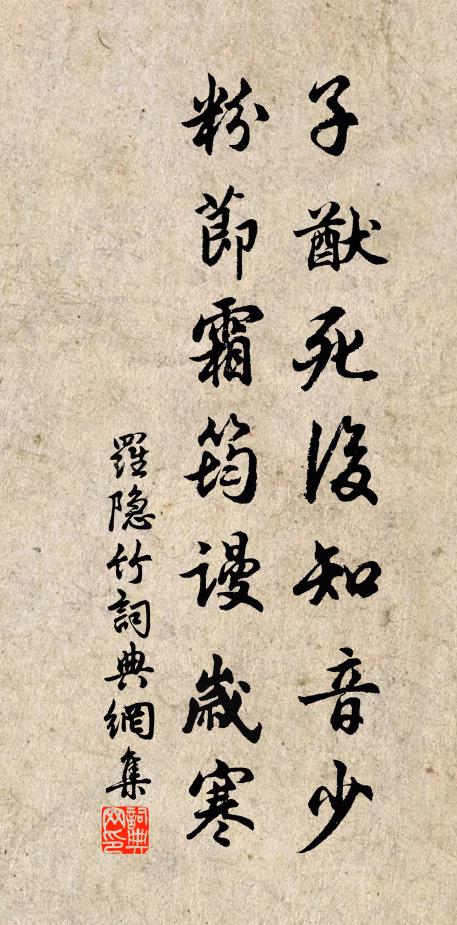 子猷死後知音少
粉節霜筠謾歲寒
羅隐竹詞典網集
詞典網印